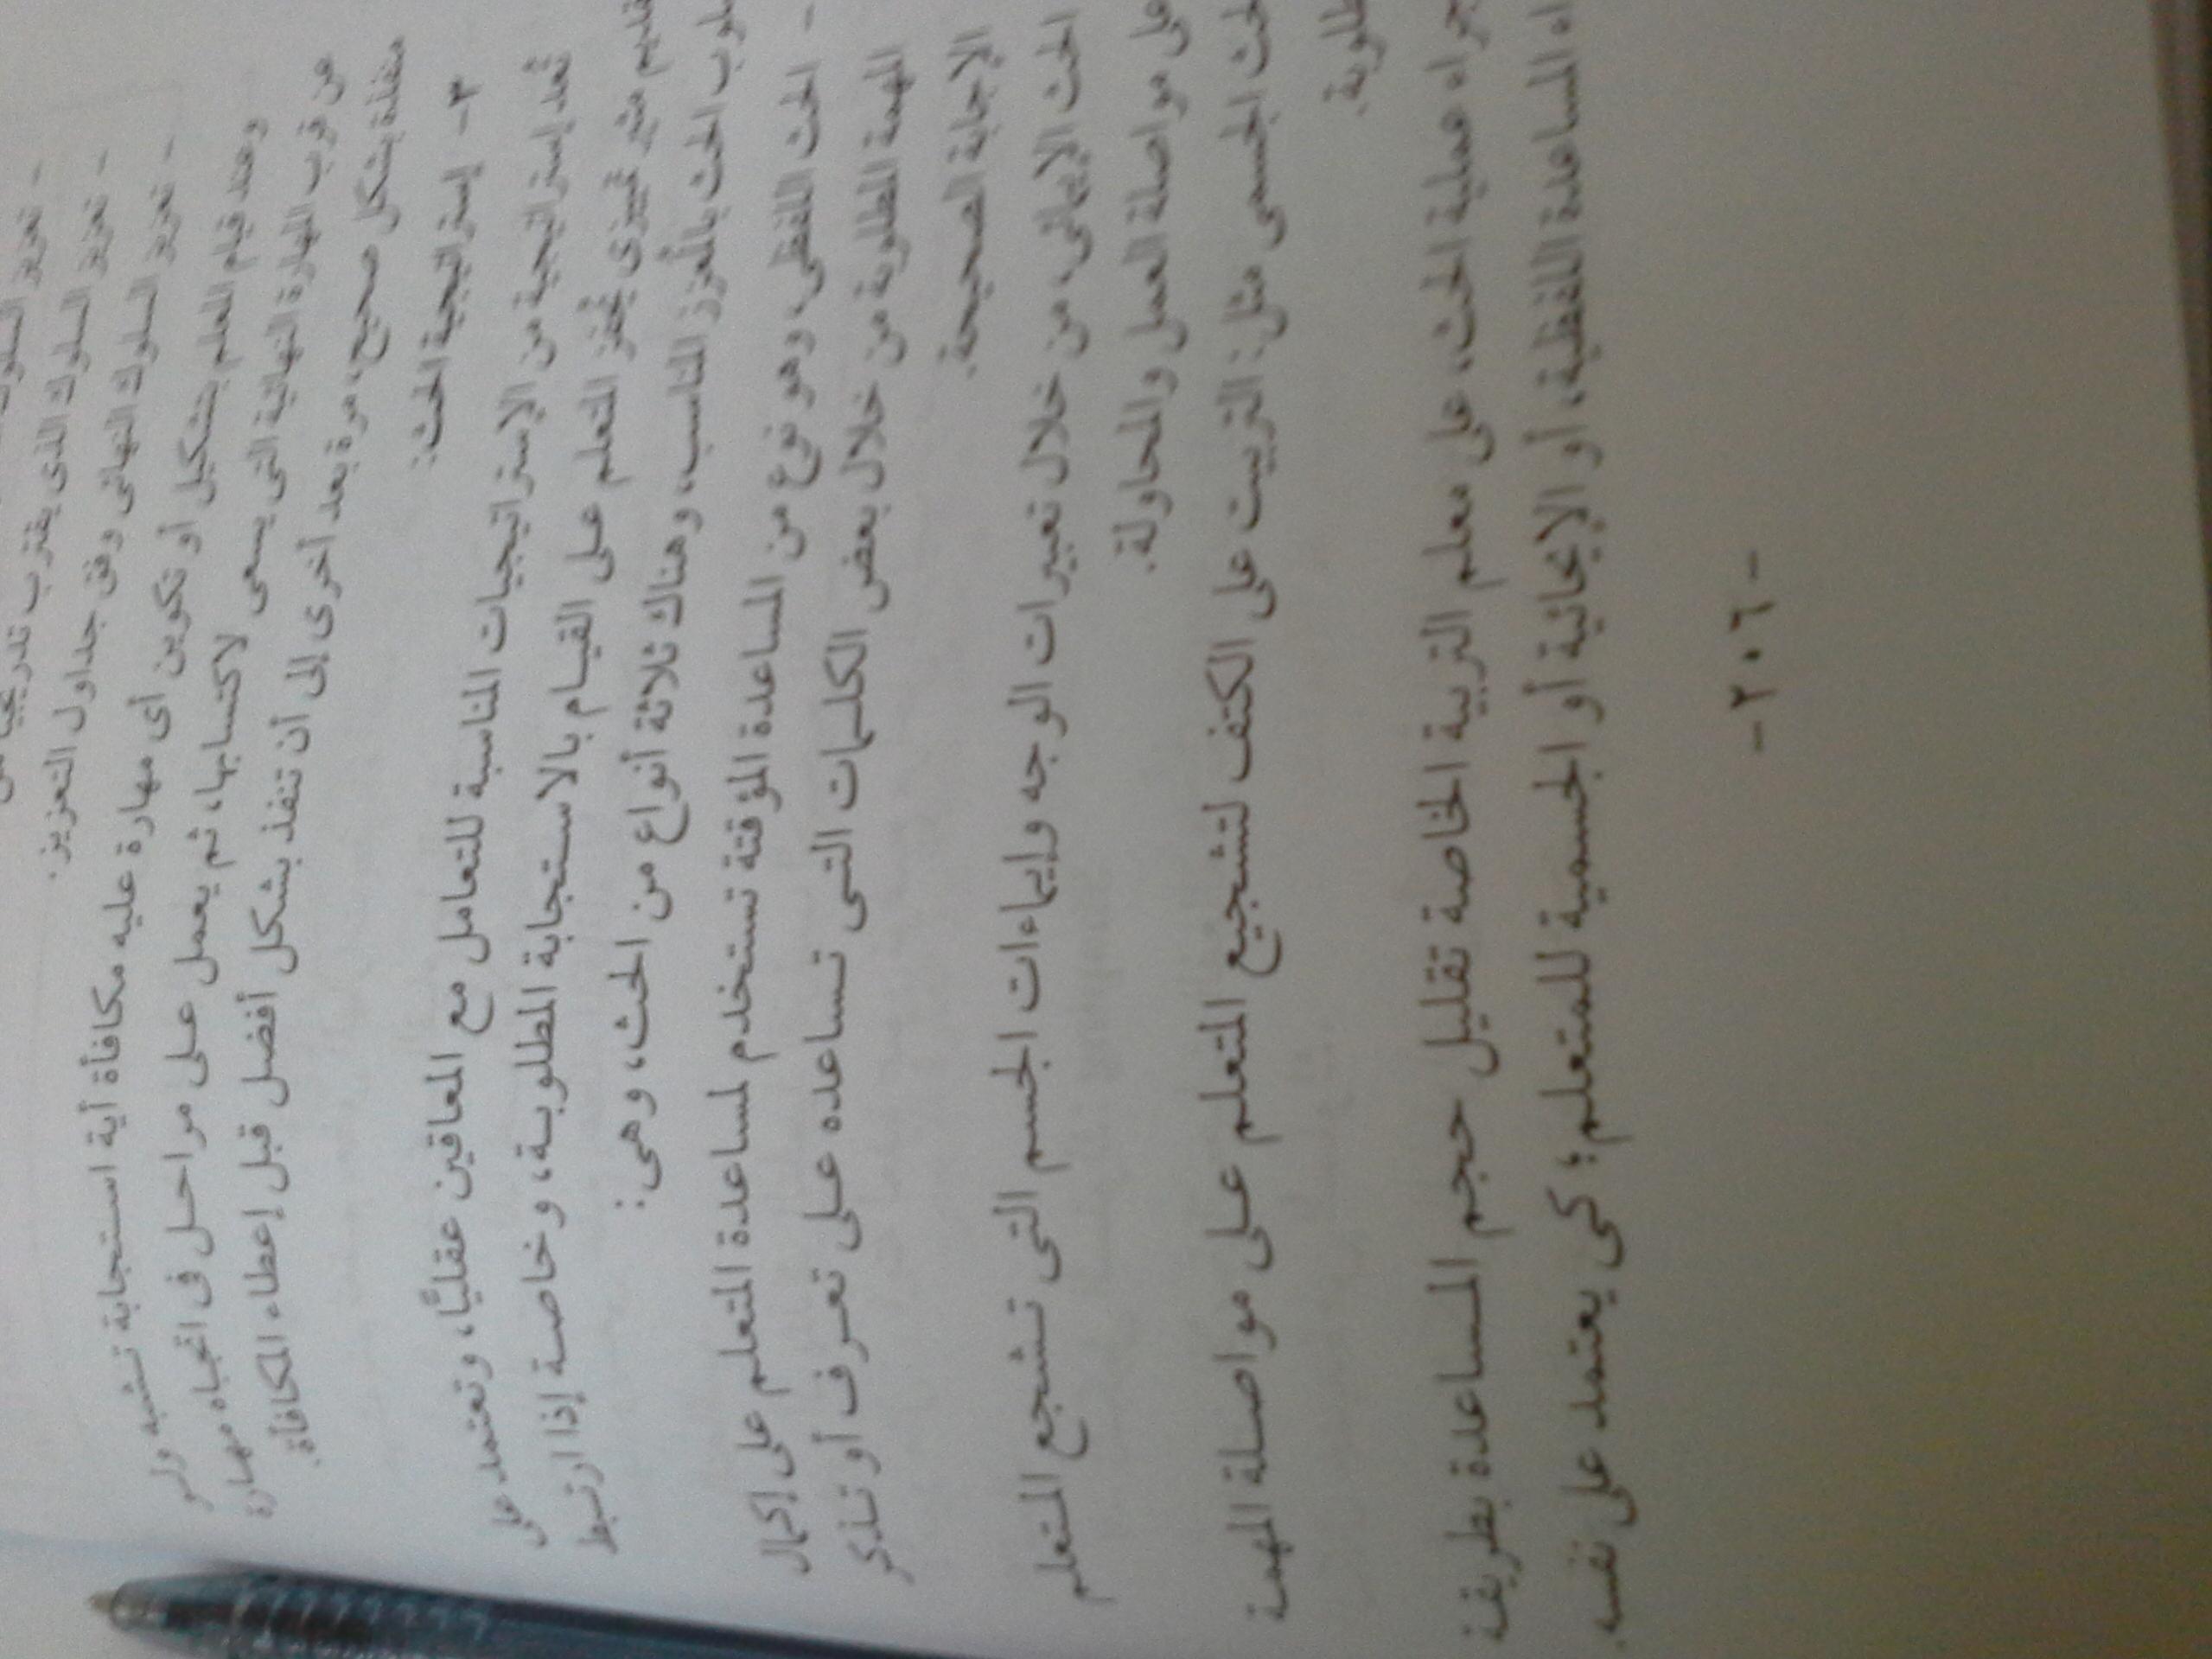 - تعزيز السلوك
- تعزيز السلوك الذى يقترب تدريجيا من
- تعزيز السلوك النهائى وفق جداول التعزيز.
وعند قيام المعلم بتشكيل أو تكوين أى مهارة عليه مكافأة أية استجابة تشبه ولو
عن قرب المهارة النهائية التى يسعى لاكتسابها، ثم يعمل على مراحل فى اتجاه مهارة
منفذة بشكل صحيح، مرة بعد أخرى إلى أن تنفذ بشكل أفضل قبل إعطاء المكافأة.
٣- إستراتيجية الحث:
تُعد إستراتيجية من الإستراتيجيات المناسبة للتعامل مع المعاقين عقليًّا، وتعتمد على
تقديم مثير تمييزى يُحفز المتعلم على القيام بالاستجابة المطلوبة، وخاصة إذا ارتبط
أسلوب الحث بالمُعزز المناسب، وهناك ثلاثة أنواع من الحث، وهى:
- الحث اللفظى، وهو نوع من المساعدة المؤقتة تستخدم لمساعدة المتعلم على إكمال
المهمة المطلوبة من خلال بعض الكلمات التى تساعده على تعرف أو تذكر
الإجابة الصحيحة.
الحث الإيمائى، من خلال تعبيرات الوجه وإيماءات الجسم التى تشجع المتعلم
على مواصلة العمل والمحاولة.
الحث الجسمى مثل: التربيت على الكتف لتشجيع المتعلم على مواصلة المهمة
طلوبة.
جراء عملية الحث، على معلم التربية الخاصة تقليل حجم المساعدة بطريقة
المساعدة اللفظية، أو الإيحائية أو الجسمية للمتعلم؛ كى يعتمد على نفسه.
-٢٠٦-